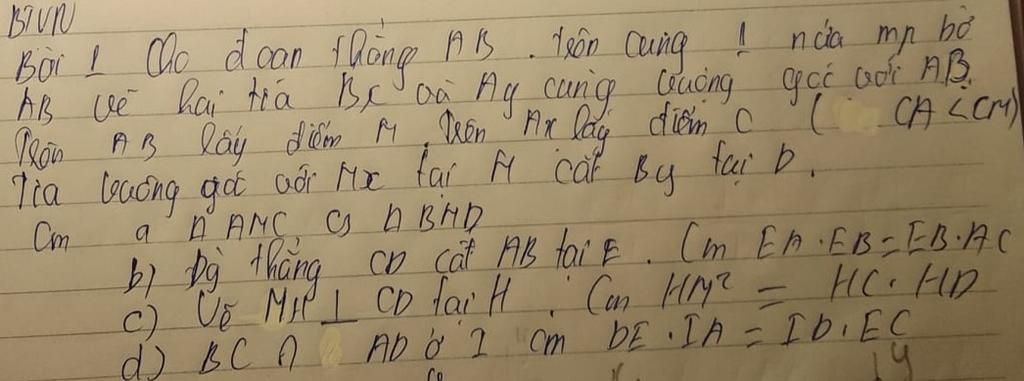 BTVN
Bài 1 Cho đoạn thẳng AB. Trên cùng 1 nửa mp bờ
AB vẽ hai tia Bx và Ay cùng vuông góc với AB.
Trên AB lấy điểm M. Trên Ax lấy điểm C ( CA < CM)
Tia vuông góc với Mx tại M cắt By tại D.
Cm a Δ AMC ∽ Δ BMD
b) Đg thẳng CD cắt AB tại E. Cm EA.EB=EB.AC
c) Vẽ MH ⊥ CD tại H. Cm HM² = HC.HD
d) BC ∩ AD ở I cm DE.IA = ID.EC